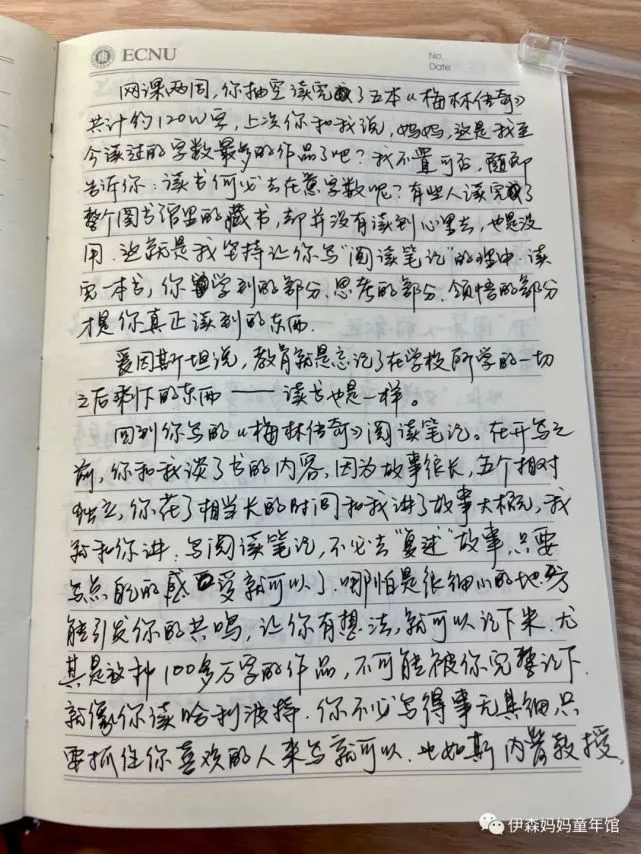 ECNU
No.
Date
网课两周，你抽空读完了五本《梅林传奇》
共计约120W字，上次你和我说，妈妈，这是我至
今读过的字数最多的作品了吧？我不置可否，随即
告诉你：读书何必去在意字数呢？有些人读完了
整个图书馆里的藏书，却并没有读到心里去，也是没
用．这就是我坚持让你写“阅读笔记”的理由．读
完一本书，你学到的部分．思考的部分．领悟的部分
才是你真正读到的东西．
爱因斯坦说，教育就是忘记了在学校所学的一切
之后剩下的东西——读书也是一样。
回到你写的《梅林传奇》阅读笔记。在开写之
前，你和我谈了书的内容，因为故事很长，五个相对
独立，你花了相当长的时间和我讲了故事大概，我
你讲．写阅读笔记，不必去“复述”故事，只要
写点自己的感受就可以了．哪怕是很细小的地方
能引发你的共鸣，让你有想法，就可以记下来．尤
其是这种100多万字的作品，不可能被你完整记下．
就像你读哈利波特．你不必写得事无具细，只
要抓住你喜欢的人来写就可以．比如斯内普教授，
伊森妈妈童年馆